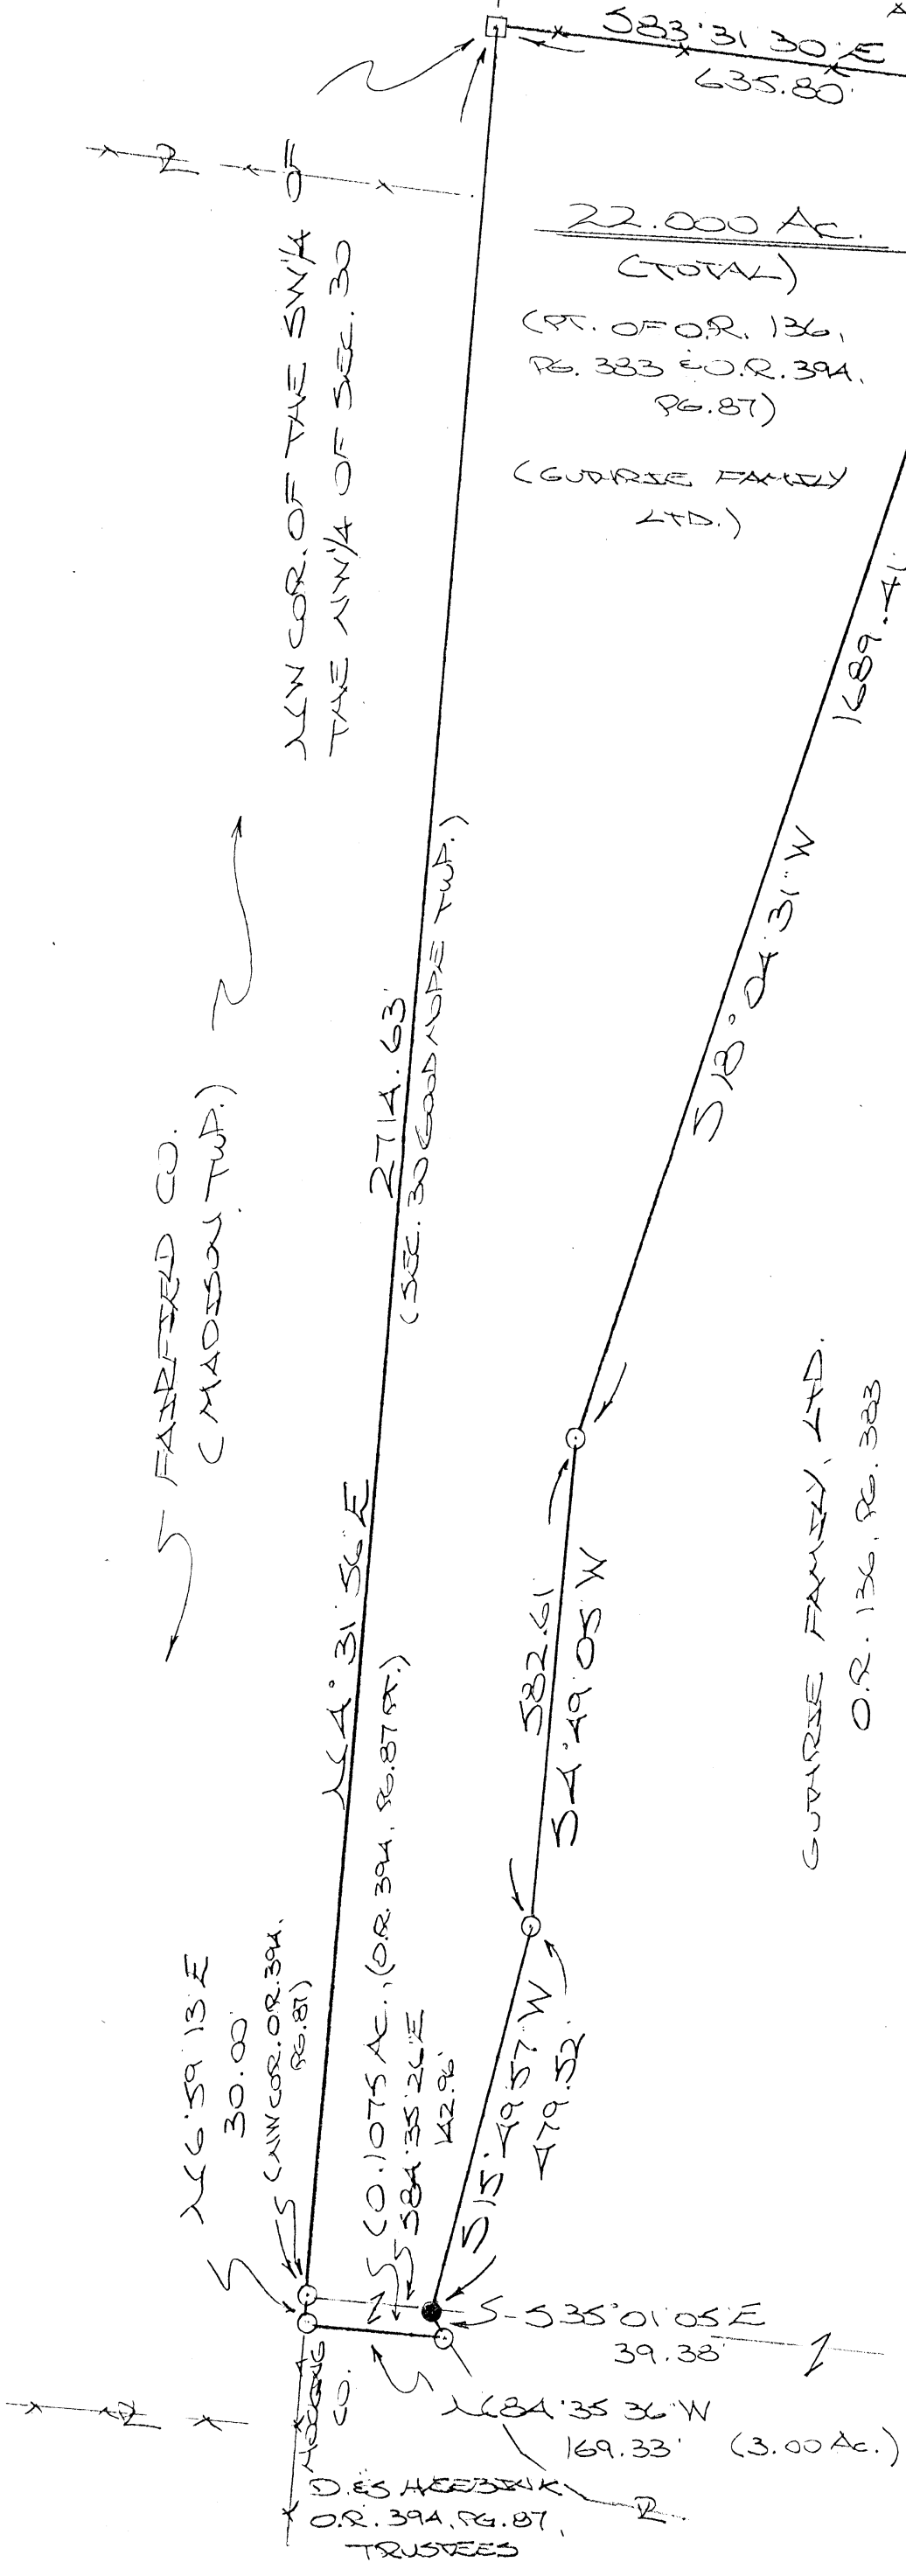 S83°31'30"E
635.80'
22.000 Ac.
(TOTAL)
(PT. OF O.R. 136,
PG. 383 & O.R. 394,
PG. 87)
(GUTHRIE FAMILY
LTD.)
NW COR. OF THE SW 1/4 OF
THE NW 1/4 OF SEC. 30
1689.41
S18°04'31"W
2714.63'
(SEC. 30 GOOD HOPE TWP.)
N4°31'56"E
FAIRFIELD CO.
(MADISON TWP.)
582.61'
S4°49'05"W
GUTHRIE FAMILY, LTD.
O.R. 136, PG. 383
N6°59'13"E
30.00'
(NW COR. O.R. 394,
PG. 87)
(0.1075 AC., (O.R. 394, PG. 87 PT.)
S84°35'26"E
142.96'
S15°49'57"W
479.52'
S35°01'05"E
39.38'
N84°35'36"W
169.33' (3.00 Ac.)
HOCKING
CO.
D. & S HEEBINK
O.R. 394, PG. 87,
TRUSTEES